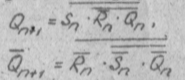 Qₙ₊₁ = Sₙ · \overline{\overline{Rₙ} · Qₙ},
\overline{Q}ₙ₊₁ = \overline{\overline{Rₙ} · \overline{\overline{Sₙ} · \overline{Qₙ}}}